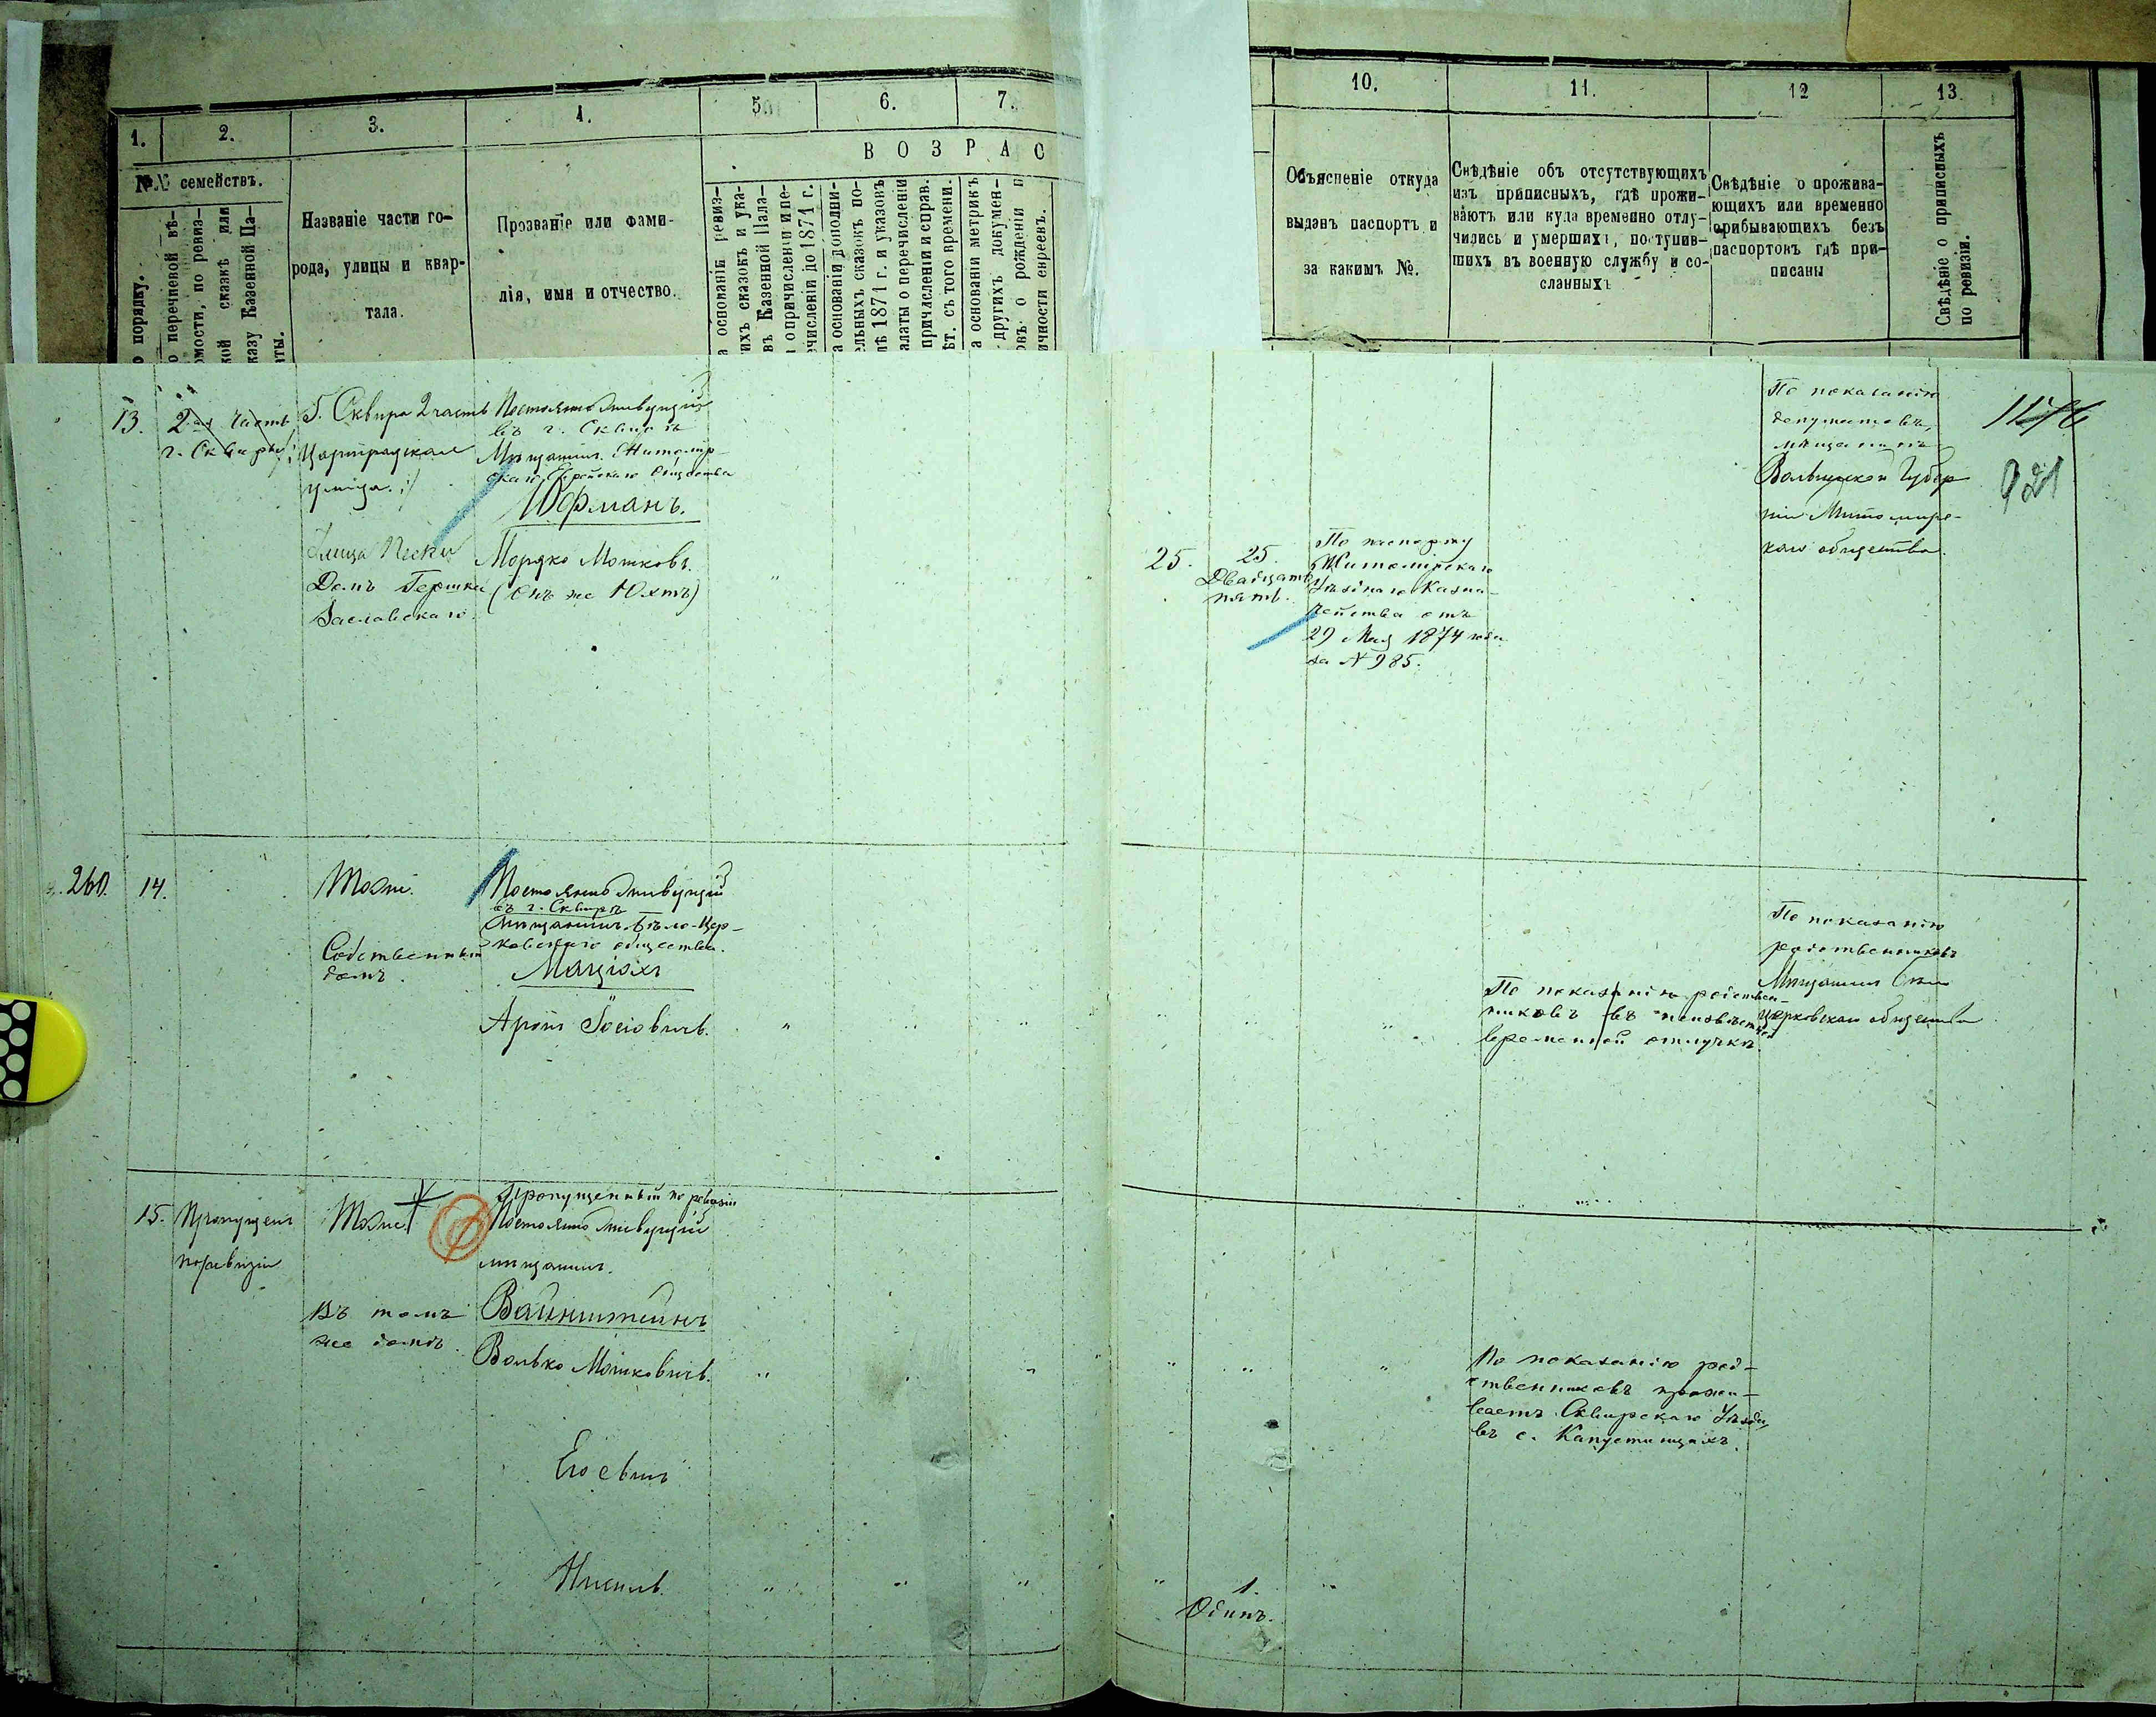 1.
2.
3.
4.
5.
6.
7.
10.
11.
12
13.
№№ семействъ.
ВОЗРАС
о порядку.
о перечневой вѣ-
омости, по ревиз-
кой сказкѣ или
казу Казенной Па-
аты.
Названіе части го-
рода, улицы и квар-
тала.
Прозваніе или фами-
лія, имя и отчество.
а основаніи ревиз-
ихъ сказокъ и ука-
въ Казенной Пала-
о причисленіи и пе-
ечисленіи до 1871 г.
а основаніи дополни-
ельныхъ сказокъ по-
лѣ 1871 г. и указовъ
алаты о перечислені
причисленіи и справ.
ѣт. съ того времени.
а основаніи метрикъ
другихъ докумен-
овъ о рожденіи и
ичности евреевъ.
Объясненіе откуда
выданъ паспортъ и
за какимъ №.
Свѣдѣніе объ отсутствующихъ
изъ приписныхъ, гдѣ прожи-
ваютъ или куда временно отлу-
чились и умершихъ, поступив-
шихъ въ военную службу и со-
сланныхъ
Свѣдѣніе о прожива-
ющихъ или временно
прибывающихъ безъ
паспортовъ гдѣ при-
писаны
Свѣдѣніе о приписныхъ
по ревизіи.
13.
2ая часть
г. Сквиры
Г. Сквира 2 часть
Цариградская
улица.
Улица Пески
Домъ Гершка
Заславскаго.
Постоянно живущій
въ г. Сквирѣ
Мѣщанинъ Житомир-
скаго Еврейскаго общества
Юфманъ.
Мордко Мошковъ.
(Онъ же Юхтъ)
25.
25.
Двадцать
пять.
По паспорту
Житомірскаго
Уѣзднаго Казна-
чейства отъ
29 Мая 1874 года
за № 985.
По показанію
депутатовъ,
мѣщанинъ
Волынской Губер
ніи Житомирс-
каго общества.
921
260.
14.
Тоже.
Собственный
домъ.
Постоянно живущій
въ г. Сквирѣ
Мѣщанинъ Бѣло-Цер-
ковскаго общества.
Аронъ Іосіовичъ.
По показанію родствен-
никовъ въ неизвѣстной
временной отлучкѣ.
По показанію
родственниковъ
Мѣщанинъ Бѣло
Церковскаго общества
15.
Пропущенъ
по ревизіи
Тоже
Въ томъ
же домѣ.
Пропущенный по ревизіи
Постоянно живущій
мѣщанинъ.
Вайнштейнъ
Волько Мошковичъ.
По показанію род-
ственниковъ прожи-
ваетъ Сквирскаго Уѣзда,
въ с. Капустинцахъ.
Его сынъ
Нисинь.
1.
Одинъ.